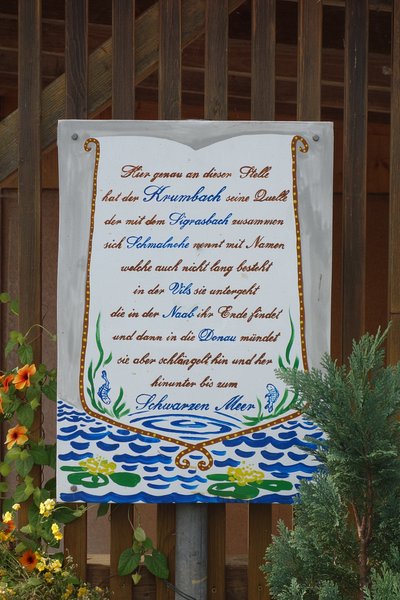 Hier genau an dieser Stelle
hat der Krumbach seine Quelle
der mit dem Sigrasbach zusammen
sich Schmalnohe nennt mit Namen
welche auch nicht lang besteht
in der Vils sie untergeht
die in der Naab ihr Ende findet
und dann in die Donau mündet
sie aber schlängelt hin und her
hinunter bis zum
Schwarzen Meer